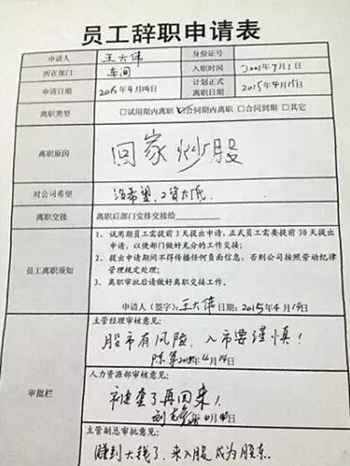 员工辞职申请表
申请人 王大伟 身份证号
所在部门 车间 入职时间 年7月1日
申请日期 2015年4月 日 计划正式离职日期 2015年4月 日
离职类型 □试用期内离职 ☑合同期内离职 □合同到期 □其它
离职原因 回家炒股
对公司希望 没希望,工资太低.
离职交接 离职后部门安排交接给
员工离职须知
1、试用期员工需提前3天提出申请,正式员工需要提前30天提出
申请,以便部门做好充分的工作安排;
2、提出申请期间不得传播任何负面信息,否则公司按照劳动纪律
管理规定处理;
3、离职审批后请做好离职交接工作。
申请人(签字):王大伟 日期:2015年4月 日
审批栏
主管经理审核意见:
股市有风险,入市要谨慎!
人力资源部审核意见:
被套了再回来!
主管副总审批意见:
赚到大钱了,来入股成为股东.